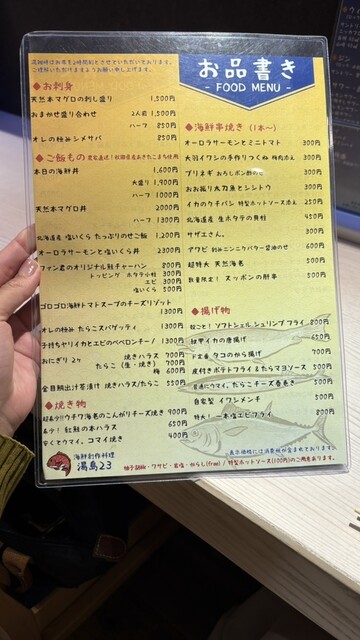 混雑時はお席を2時間制とさせていただいております。
ご理解いただけますようお願い申し上げます。
お品書き
- FOOD MENU -
◆お刺身
天然本マグロの刺し盛り 1,500円
おまかせ盛り合わせ 2人前 1,500円
ハーフ 850円
オレの極みシメサバ 850円
◆ご飯もの 農家直送!秋田県産あきたこまち使用
本日の海鮮丼 1,600円
大盛り 1,900円
ハーフ 1000円
天然本マグロ丼 2000円
ハーフ 1300円
北海道産 塩いくら たっぷりのせご飯 1,200円
オーロラサーモンと塩いくら丼 2300円
ファン君のオリジナル鮭チャーハン 800円
トッピング ホタテ小柱 300円
エビ 300円
塩いくら 500円
ゴロゴロ海鮮トマトスープのチーズリゾット
1300円
オレの極み たらこスパゲッティ 1300円
子持ちヤリイカとエビのペペロンチーノ 1300円
おにぎり 2ヶ 焼きハラス 700円
たらこ(生・焼き) 700円
梅 600円
金目鯛出汁茶漬け 焼きハラス/たらこ 550円
◆焼き物
超あテ!!ウチワ海老のこんがりチーズ焼き 900円
あテ! 紅鮭の本ハラス 650円
安くてウマイ、コマイ焼き 400円
海鮮創作料理
湯島23
◆海鮮串焼き (1本~)
オーロラサーモンとミニトマト 300円
大羽イワシの手作りつくね 梅肉添え 300円
ブリネギ おろしポン酢のせ 300円
おお振り丸乃蒸とシシトウ 300円
イカのウチバシ 特製ホットソース添え 250円
北海道産 生ホタテの貝柱 450円
サザエさん。 300円
アワビ 別海ニンニクバター醤油のせ 600円
超特大 天然海老 500円
数量限定! スッポンの肝串 500円
◆揚げ物
殻ごと! ソフトシェル シュリンプ フライ 800円
紋甲イカの唐揚げ 650円
ド定番 タコのから揚げ 700円
皮付きポテトフライ&たらマヨソース 500円
たらこチーズ春巻き 500円
自家製 イワシメンチ 500円
特大! 一本塩エビフライ 800円
表示価格には消費税が含まれております。
柚子胡椒・ワサビ・岩塩・からし(free) / 特製ホットソース(100円)のご用意あります。